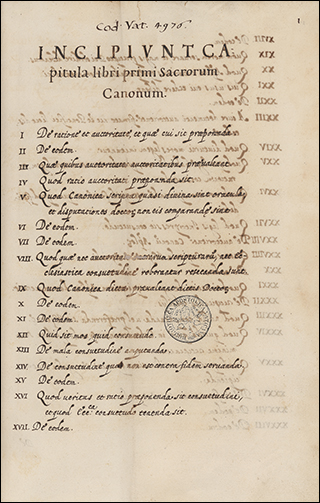 Cod. Vat. 4976.
1
INCIPIVNT CA
pitula libri primi Sacrorum
Canonum.
I De ratione et auctoritate, et quæ cui sit præponenda.
II De eodem.
III Quæ quibus auctoritates auctoritatibus prævaleant.
IV Quod ratio auctoritati præponenda sit.
V Quod Canonica scriptura quasi divina sint oracula
et disputationes doctor, non eis comparandæ sint.
VI De eodem.
VII De eodem.
VIII Quod quæ nec auctoritate scripturarum, nec
clesiastica consuetudine roborantur resecanda sunt.
IX Quod Canonica dicta prævaleant dictis Doctor
X De eodem.
XI De eodem.
XII Quid sit mos, quid consuetudo.
XIII De mala consuetudine
XIV De consuetudine quæ non est contra fidem servanda.
XV De eodem.
XVI Quod veritas et ratio præponenda sit consuetudini,
et quod consuetudo tenenda sit.
XVII De eodem.